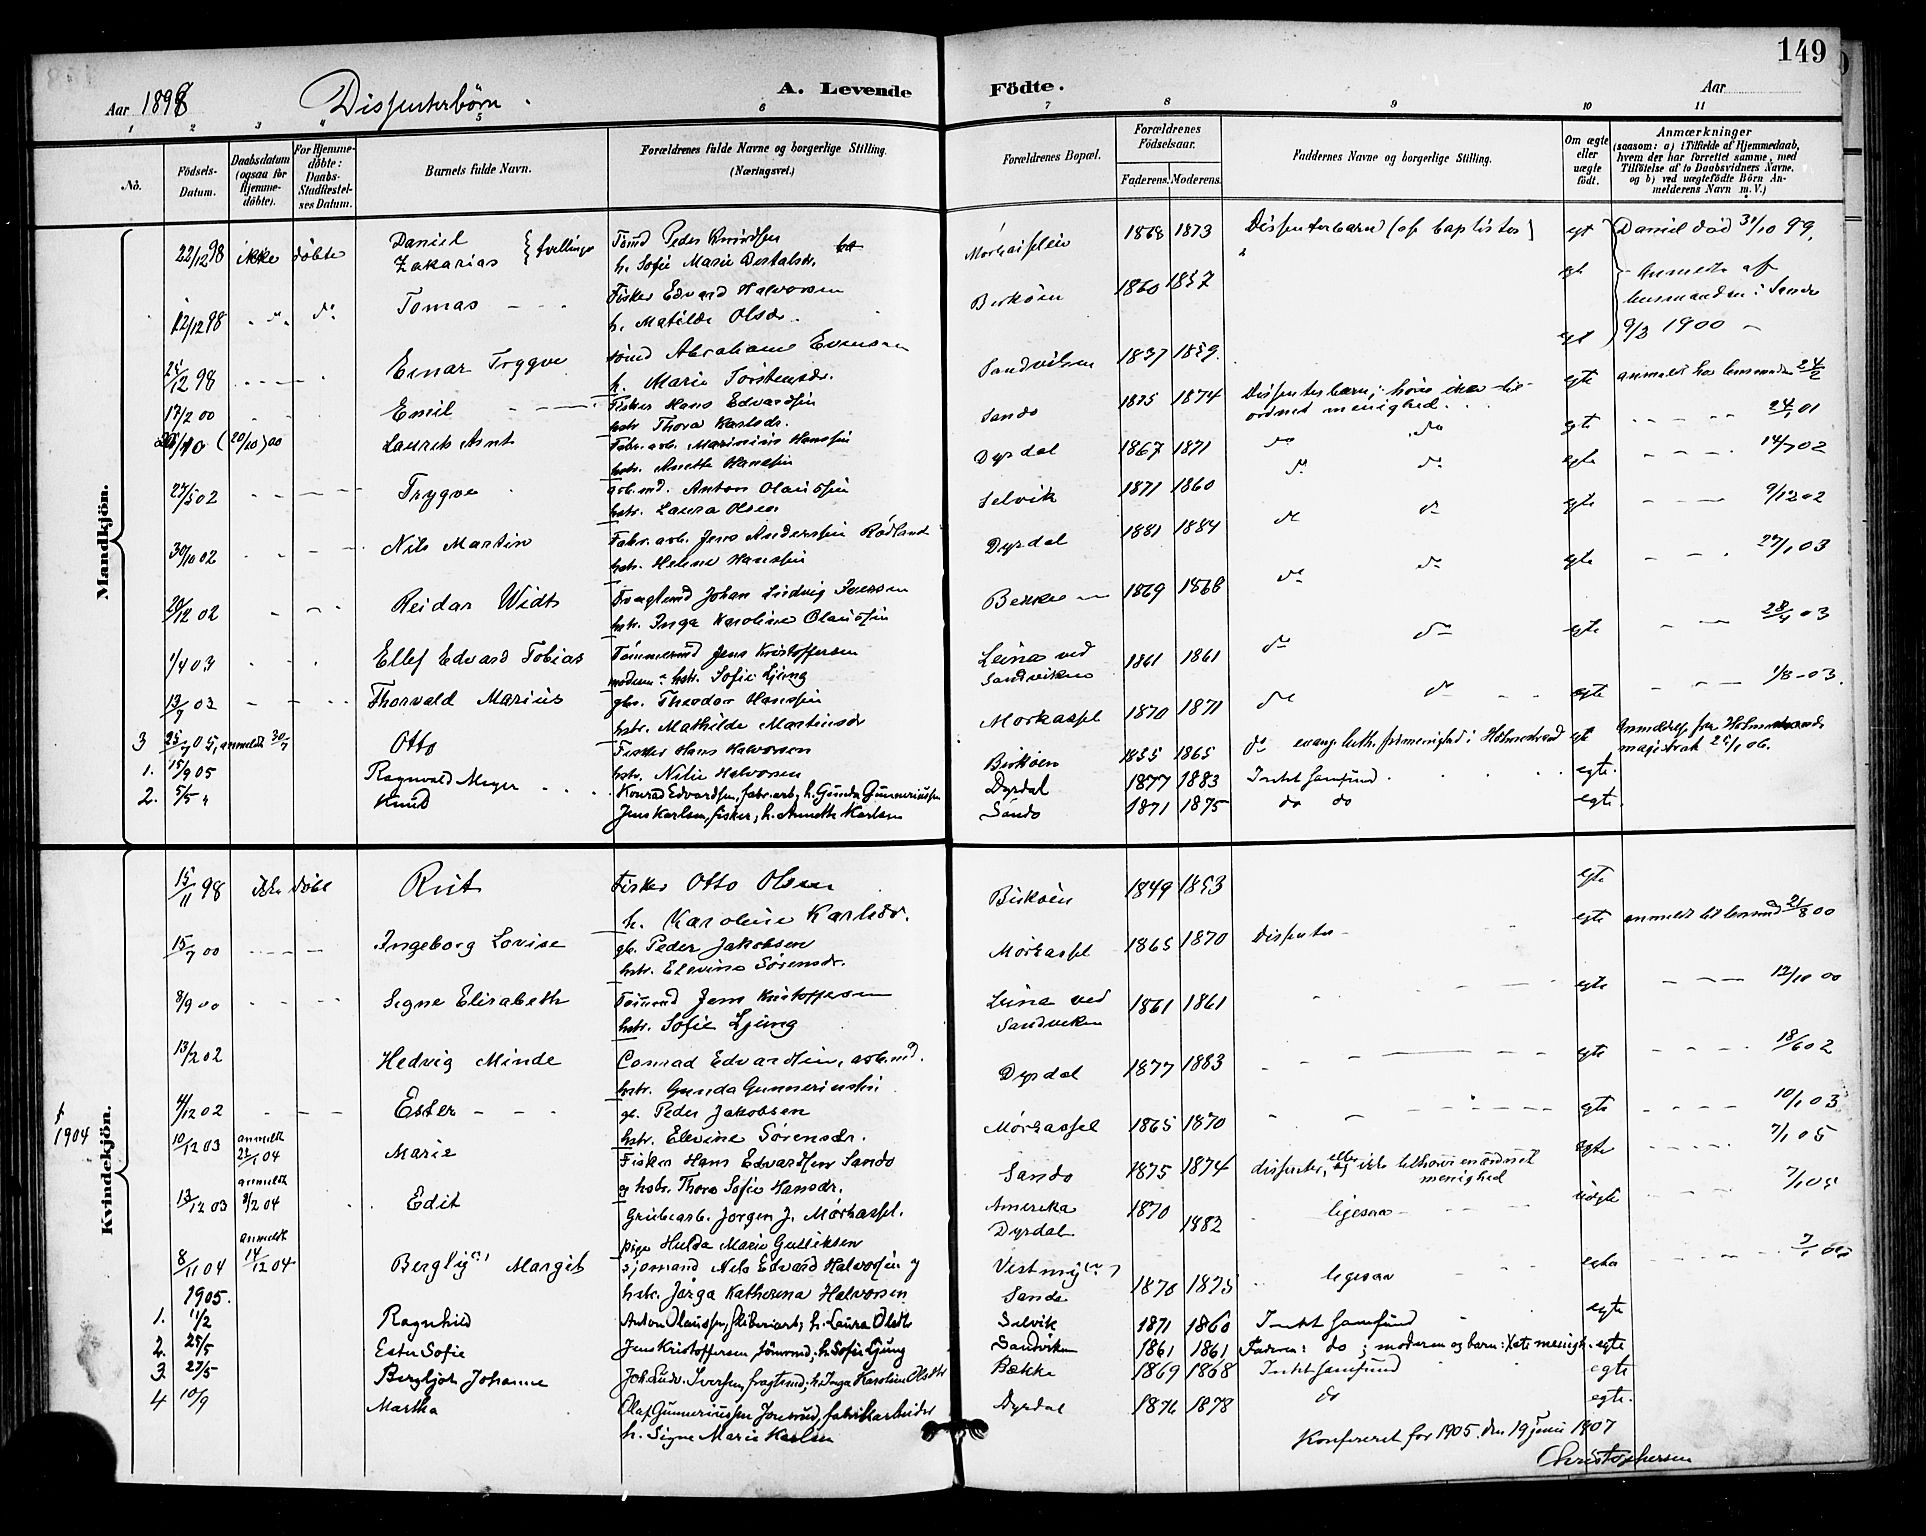 149
Aar 1898
Dissenterbørn.
A. Levende Fødte.
Aar
1 2 3 4 5 6 7 8 9 10 11
No.
Födsels-Datum.
Daabsdatum (ogsaa for Hjemmedöbte).
For Hjemmedöbte: Daabs-Stadfæstelses Datum.
Barnets fulde Navn.
Forældrenes fulde Navne og borgerlige Stilling. (Næringsvei.)
Forældrenes Bopæl.
Forældrenes Födselsaar.
Faderens. Moderens.
Faddernes Navne og borgerlige Stilling.
Om ægte eller uægte födt.
Anmærkninger (saasom: a) i Tilfælde af Hjemmedaab, hvem der har forrettet samme, med Tilföielse af to Daabsvidners Navne, og b) ved uægtefödte Börn Anmelderens Navn m. V.)
Mandkjön.
22/12 98 ikke döbte Daniel Zakarias } tvillinger Tömd Peder Knudsen h. Sofie Marie 1868 1873 Dissenterbarn (af baptister) egt Daniel död 31/10 99.
12/12 98 Tomas Fisker Edvard Halvorsen h. Matilde Olsdr. Birköen 1860 1857 egt Anmeldt af lensmanden i Sande
9/3 1900
24/12 98 Einar Trygve Abraham Evensen h. Marie Torstensdr. Sandviken 1837 1859. egt
17/2 00 Emil Fisker Hans Edvardsen hstr. Thora Karlsdr. Sando 1875 1874 Dissenterbarn; ordnet menighed. egte anmeldt hos lensmanden 24/2
(20/10) 00 Laurits Arnt Fabr.arb. Marinius Hansen hstr. Anette Hansen Dyrdal 1867 1871 do do egt 24/1 01
27/5 02 Trygve arb.md. Anton Olausen hstr. Laura Olsen Selvik 1871 1860 do do egte 14/7 02
30/10 02 Nils Martin Fabr.arb. Jens Andersen Rödland hstr. Helene Hansen Dyrdal 1881 1884 do do egte 9/12 02
29/12 02 Reidar Widt Fragtmd Johan Ludvig Iversen hstr. Inga Karoline Olausen Bekken 1869 1868 do do egte 27/1 03
1/4 03 Ellef Edvard Tobias Tömmermd Jens Kristoffersen moderen: hstr. Sofie Ljung Leina ved Sandviken 1861 1861 do do egte 28/4 03
13/7 03 Thorvald Marius gbr. Theodor Hansen hstr. Mathilde Martinsdr Mörkassel 1870 1871 do do egte 1/8-03.
3 25/7 05, anmeldt 30/7 Otto Fisker Hans Halvorsen hstr. Nilie Halvorsen Birköen 1855 1865 do evang. luth. frimenighed i Holmestrand egte Anmeldelse fra Holmestrands magistrat 25/1 06.
1. 15/9 05 Ragnvald Meyer Konrad Edvardsen, fabr.arb, h. Gunda Gunneriussen Dyrdal 1877 1883 Intet Samfund egte.
2. 5/5 " Knud Jens Karlsen, fisker, h. Annette Karlsen Sando 1871 1875 do do egte
Kvindekjön.
15/11 98 ikke döbt Rut Fisker Otto Olsen h. Karoline Karlsdr. Birköen 1849 1853 egte
15/7 00 Ingeborg Lovise gb. Peder Jakobsen hstr. Elevine Sörensdr. Mörkassel 1865 1870 Dissenter egte anmeldt til lensmand 21/8 00
8/9 00 Signe Elisabeth Tömmd Jens Kristoffersen hstr. Sofie Ljung Leina ved Sandviken 1861 1861 egte 12/10 00
13/2 02 Hedvig Minde Conrad Edvardsen, arb.md. hstr. Gunda Gunneriusen Dyrdal 1877 1883 egte 18/6 02
4/12 02 Ester gb. Peder Jakobsen hstr. Elevine Sörensdr. Mörkassel 1865 1870 egte 10/1 03
1904
10/12 03 anmeldt 22/1 04 Marie Fisker Hans Edvardsen Sando og hstr. Thora Sofie Hansdr. Sando 1875 1874 dissenter, eller ikke tilhörer en ordnet menighed egte 7/1 05
13/12 03 anmeldt 8/2 04 Edit Grubearb. Jörgen J. Mörkassel. pige Hulda Marie Gulliksen Amerika Dyrdal 1870 1882 ligesaa uegte 7/1 05
8/11 04 anmeldt 14/12 04 Berglj(?) Margit sjomand Nils Edvard Halvorsen og hstr. Jörga Katherina Halvorsen Sande 1870 1875 ligesaa egte
1905.
1. 11/2 Ragnhild Anton Olaussen, h. Laura Olsdtr Selvik 1871 1860 Intet Samfund egte
2. 25/5 Ester Sofie Jens Kristoffersen tömrmd; h. Sofie Ljung Sandviken 1861 1861 Faderen: do ; moderen og barn: egte
3. 27/5 Bergljot Johanne Joh. Ludv. Iversen, fragtmd; h. Inga Karoline Olsdtr Bække 1869 1868 Intet Samfund egte
4 10/9 Martha Olaf Gunneriussen fabrikarbeider h. Signe Marie Karlsen Dyrdal 1876 1878 do egte.
Konfereret for 1905. den 19 juni 1907
Christophersen